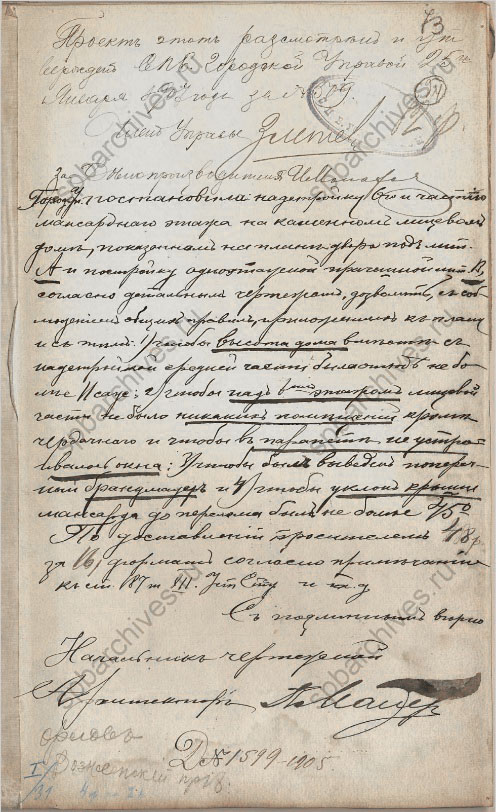 73
Проектъ этотъ разсмотрѣнъ и ут
вержденъ СПБ Городской Управой 25го
Января 1907 года за №
Членъ Управы
За Дѣлопроизводителя
постановила надстройку 6го и части
мансарднаго этажа на каменномъ лицевомъ
домѣ, показанномъ на планѣ двора подъ лит.
А и постройку одноэтажной прачешной лит. В,
согласно детальнымъ чертежамъ, дозволить, съ соб-
людениемъ общихъ правилъ, приложенныхъ къ плану
и съ тѣмъ: 1/ чтобы высота дома вмѣстѣ съ
надстройкой средней части была отнюдь не бо-
лѣе 11 саж; 2/ чтобы надъ этажомъ лицевой
части не было никакихъ помѣщений кромѣ
чердачнаго и чтобы въ парапетѣ не устраи-
вались окна; 3/ чтобы былъ выведенъ попереч-
ный брандмауеръ и 4/ чтобы уклонъ крыши
мансарда до перелома былъ не более 45°
По доставлении просителемъ 48 р
за 16 формамъ согласно примѣчанию
къ ст 187 т XII. Уст Стр и т д
Съ подлиннымъ вѣрно
Начальникъ чертежной
Архитекторъ
орловъ
Д № 1599-1905
spbarchives.ru
spbarchives.ru
spbarchives.ru
spbarchives.ru
spbarchives.ru
spbarchives.ru